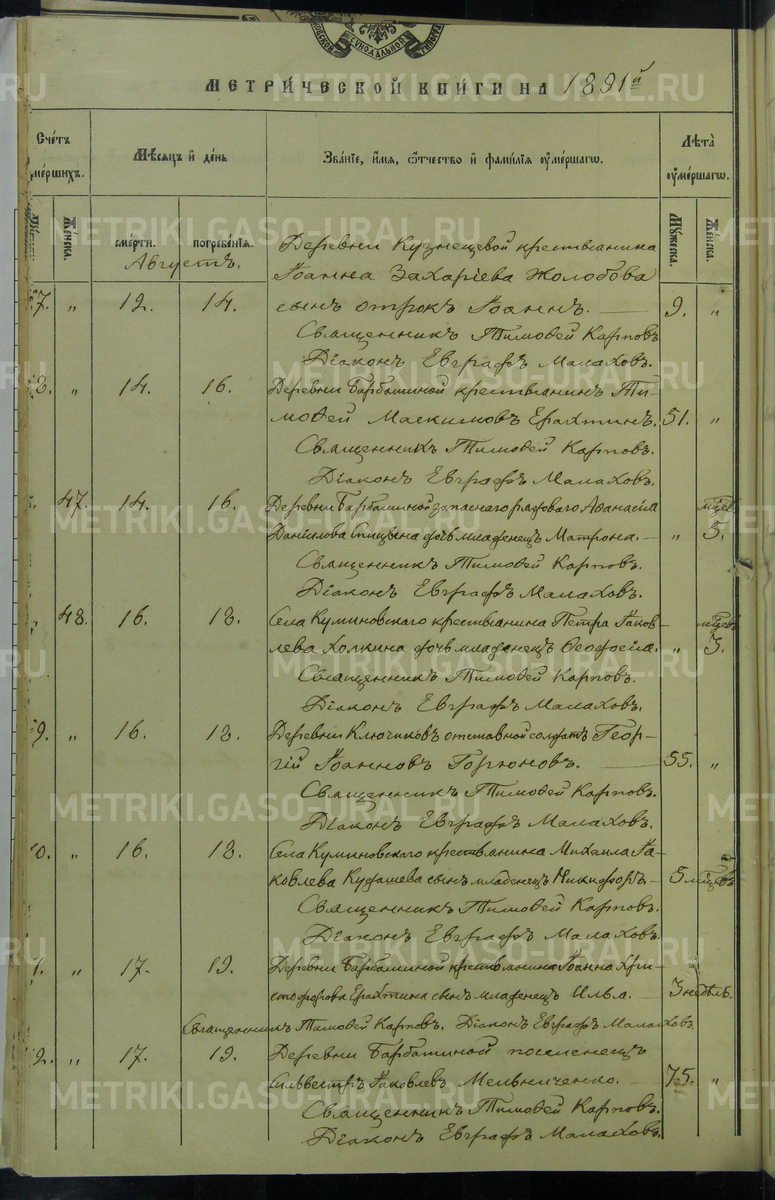 МЕТРИЧЕСКОЙ КНИГИ НА 1891й
Счетъ умершихъ.
Мѣсяцъ и день
Званіе, имя, отчество и фамилія умершаго
Лѣта умершаго.
Женска.
смерти.
погребенія.
Мужеска.
Женска.
Августъ.
Деревни Кузнецовой крестьянина
Іоанна Захаріева Жолобова
7. „ 12. 14. сынъ отрокъ Іоаннъ. 9. „
Священникъ Тимофей Карповъ
Діаконъ Евграфъ Малаховъ.
8. „ 14. 16. Деревни Барбашиной крестьянинъ Ти-
мофей Максимовъ Ерахтинъ. 51. „
Священникъ Тимофей Карповъ.
Діаконъ Евграфъ Малаховъ.
47. 14. 16. Деревни Барбашиной запаснаго рядоваго Аѳанасія мцев.
Данилова дочь младенецъ Матрона. „ 5.
Священникъ Тимофей Карповъ.
Діаконъ Евграфъ Малаховъ.
„ 48. 16. 18. Села Куминовскаго крестьянина Петра Іаков- мцев
лева Холкина дочь младенецъ Ѳеодосія. „ 3.
Священникъ Тимофей Карповъ.
Діаконъ Евграфъ Малаховъ.
9. „ 16. 18. Деревни Ключиковъ отставной солдатъ Геор-
гій Іоанновъ Горюновъ. 55. „
Священникъ Тимофей Карповъ.
Діаконъ Евграфъ Малаховъ.
0. „ 16. 18. Села Куминовскаго крестьянина Михаила Іа-
ковлева Кудашева сынъ младенецъ Никифоръ 5 мцевъ
Священникъ Тимофей Карповъ.
Діаконъ Евграфъ Малаховъ.
1. „ 17. 19. Деревни Барбашиной крестьянина Іоанна Хри-
стофорова Ерахтина сынъ младенецъ Илья. 3 недѣль.
Священникъ Тимофей Карповъ. Діаконъ Евграфъ Малаховъ.
2. „ 17. 19. Деревни Барбашиной поселенецъ
Сильвестръ Іаковлевъ Мельниченко. 75. „
Священникъ Тимофей Карповъ.
Діаконъ Евграфъ Малаховъ.
METRIKI.GASO-URAL.RU